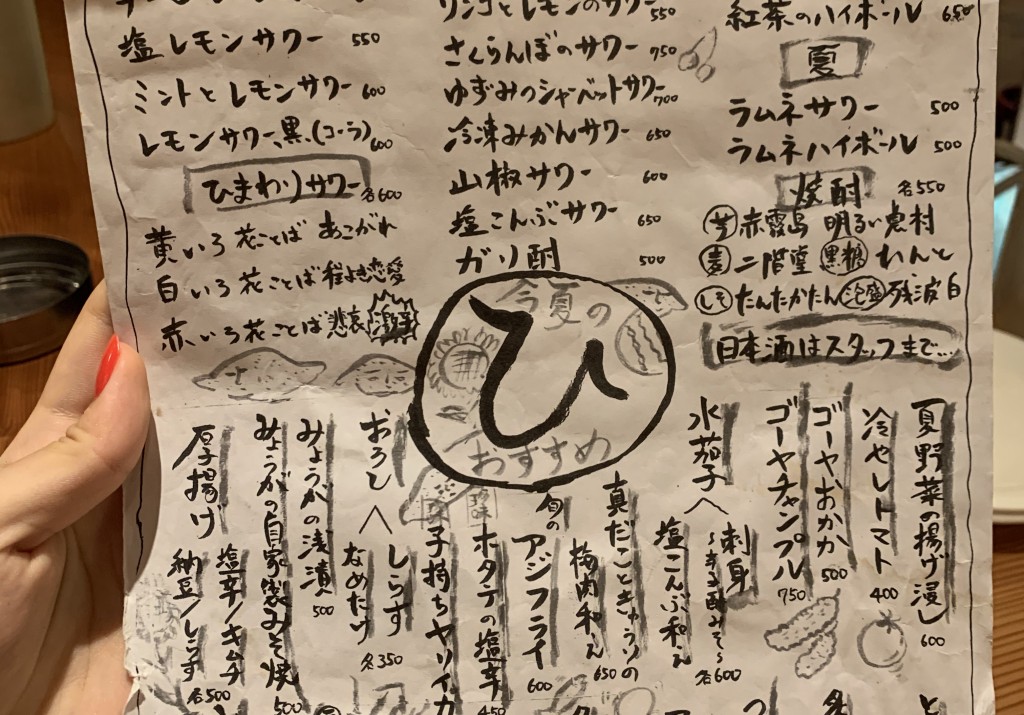 塩レモンサワー 550
ミントとレモンサワー 600
レモンサワー、黒、(コーラ) 600
ひまわりサワー 各600
黄いろ 花ことば あこがれ
白いろ 花ことば 程よき恋愛
赤いろ 花ことば 悲哀
リンゴとレモンのサワー 550
さくらんぼのサワー 750
ゆずみつシャーベットサワー 700
冷凍みかんサワー 650
山椒サワー 600
塩こんぶサワー 650
ガリ酎 500
紅茶のハイボール 650
夏
ラムネサワー 500
ラムネハイボール 500
焼酎 各550
芋 赤霧島 明るい農村
麦 二階堂 黒糖 れんと
しそ たんたかたん 泡盛 残波 白
日本酒はスタッフまで…
今夏の
ひ
おすすめ
夏野菜の揚げ浸し 600
冷やしトマト 400
ゴーヤおかか 500
ゴーヤチャンプル 750
水茄子
刺身
塩こんぶ和え
各600
真だことキゅうりの
梅肉和え 650
旬の
アジフライ 600
ホタテの塩辛 450
子持ちヤリイカ
おろし
しらす
なめたけ
各350
みょうがの浅漬 500
みょうがの自家製みそ焼 500
厚揚げ
塩辛/キムチ
納豆/しらす
各500